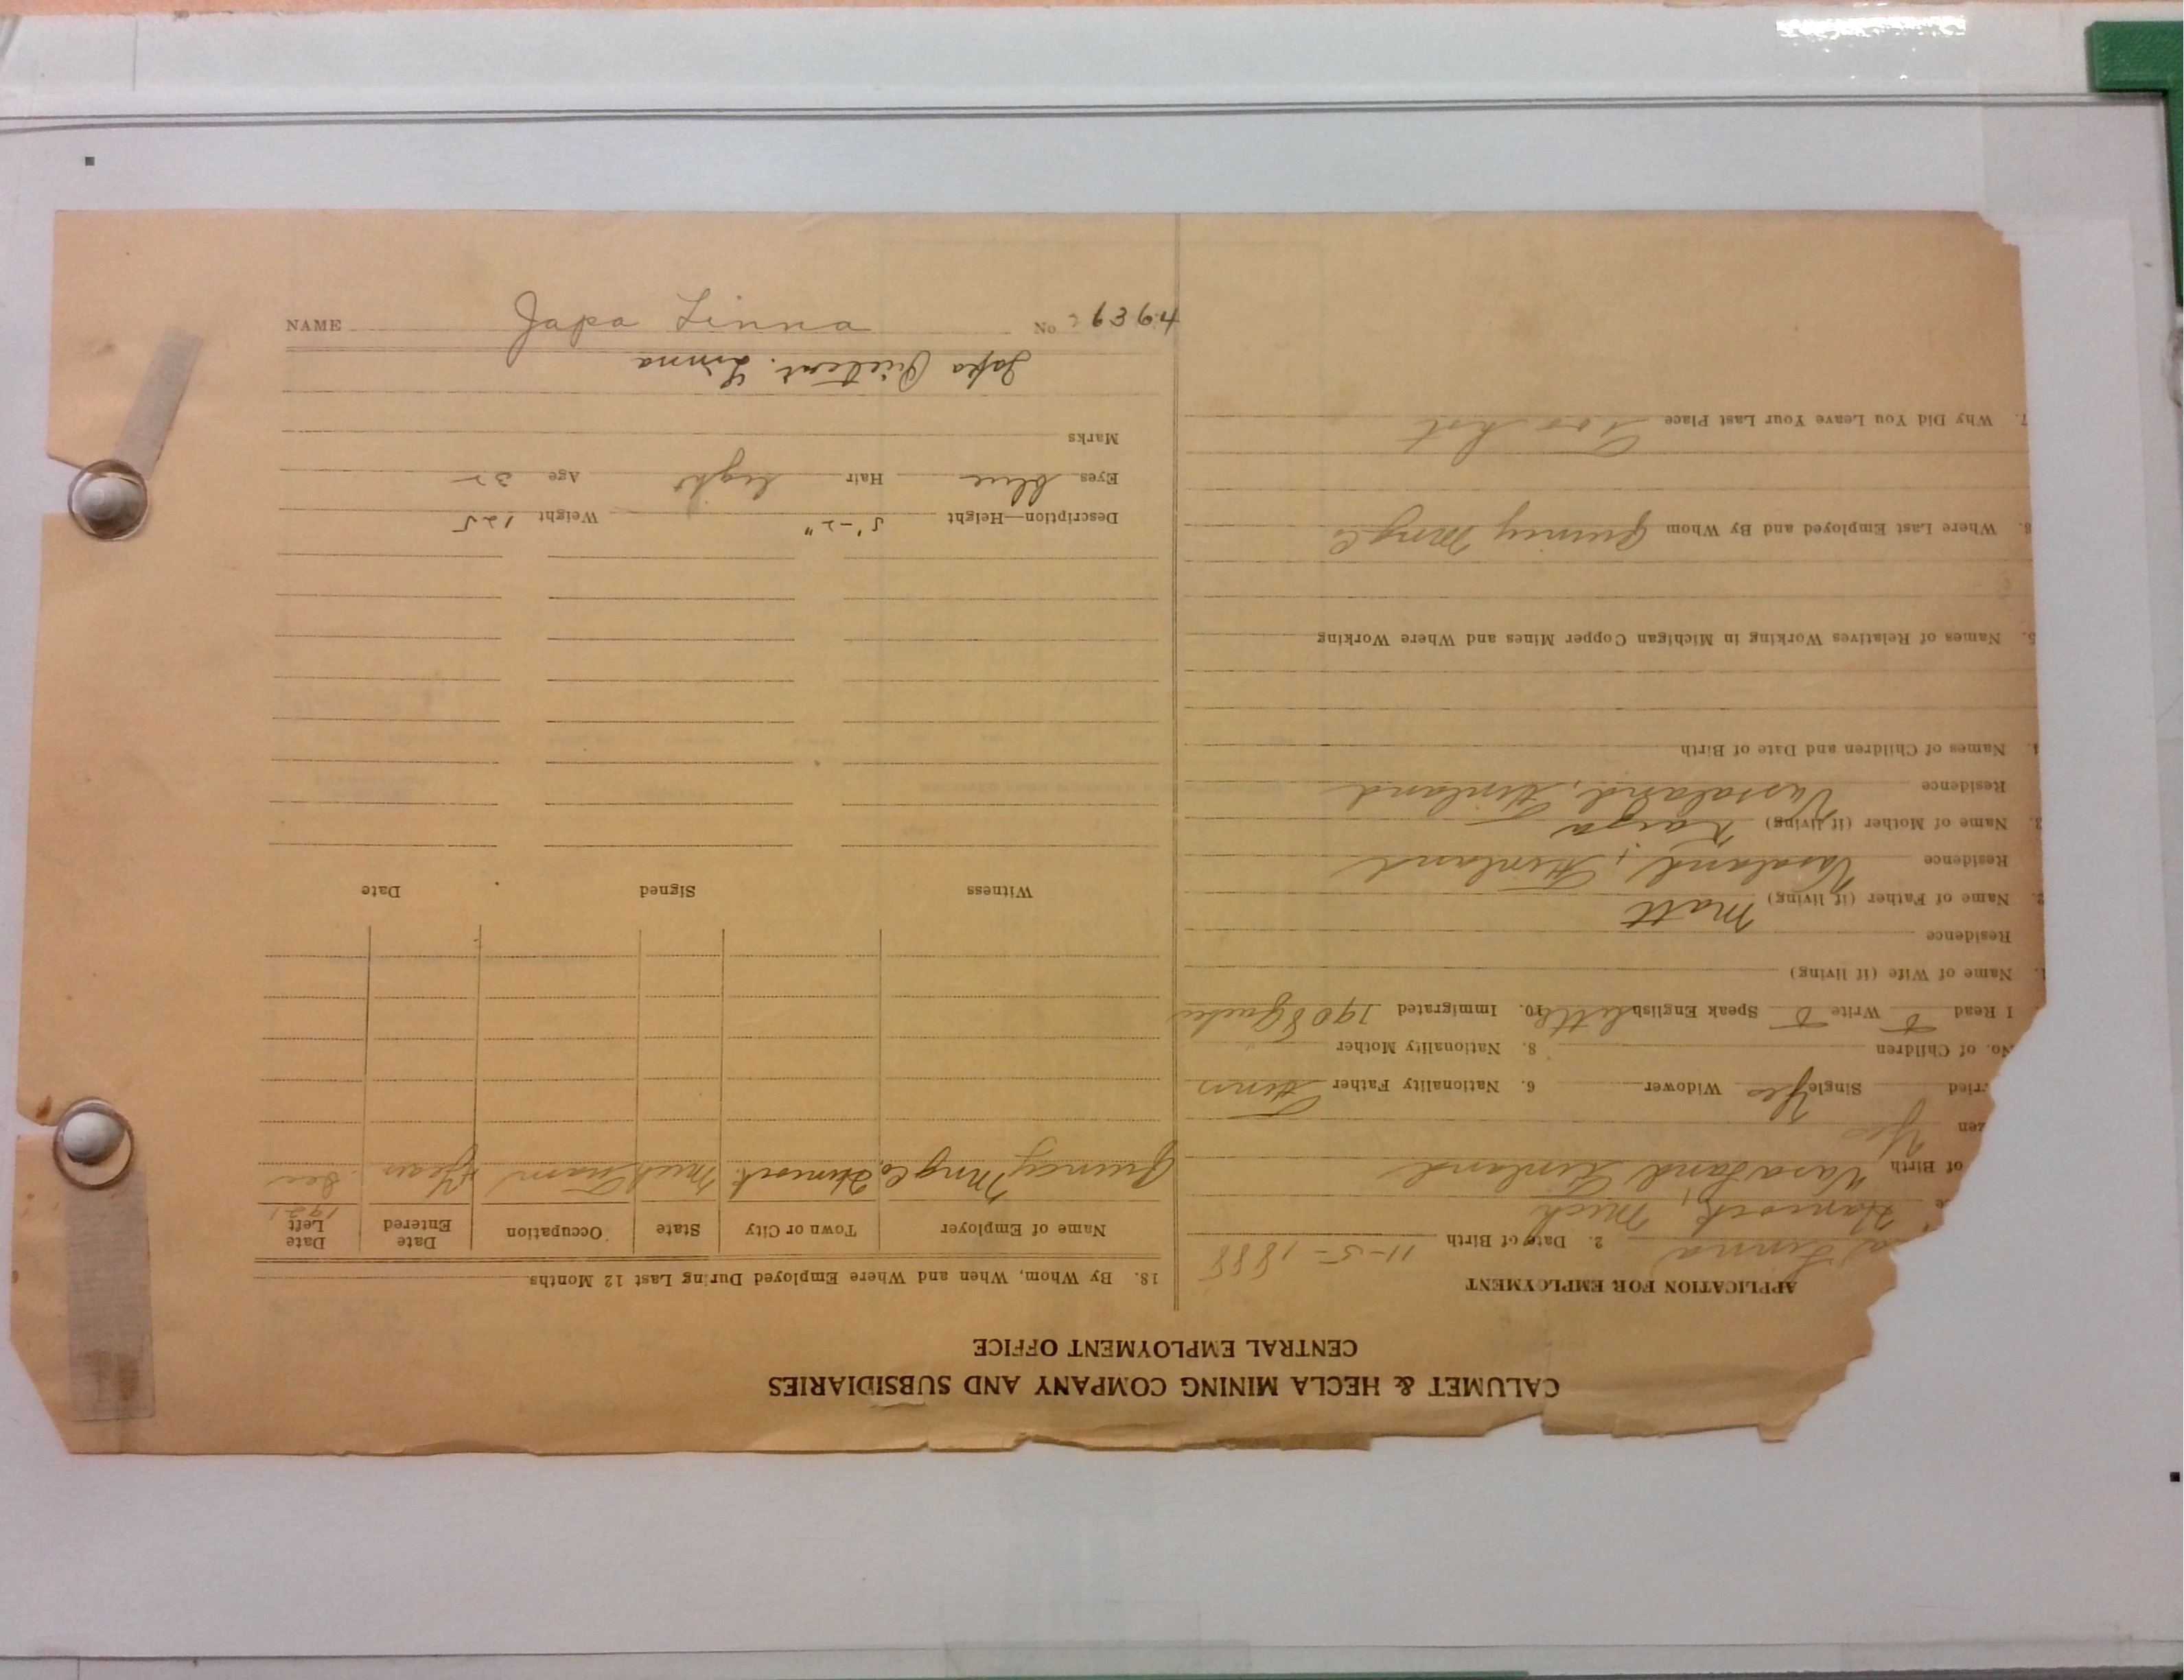 CALUMET & HECLA MINING COMPANY AND SUBSIDIARIES
CENTRAL EMPLOYMENT OFFICE
APPLICATION FOR EMPLOYMENT
Linna 2. Date of Birth 11-5-1888
Hancock, Mich
of Birth Vasaland Finland
zen Yes
rried Single Yes Widower 6. Nationality Father Finn
No. of Children 8. Nationality Mother
I Read Write Speak English little 10. Immigrated 1908
1. Name of Wife (if living)
Residence
2. Name of Father (if living) Matt
Residence Vasaland, Finland
3. Name of Mother (if living) Kaisa
Residence Vasaland, Finland
4. Names of Children and Date of Birth
5. Names of Relatives Working in Michigan Copper Mines and Where Working
6. Where Last Employed and By Whom Quincy Mng Co
7. Why Did You Leave Your Last Place Too hot
18. By Whom, When and Where Employed During Last 12 Months
Name of Employer Town or City State Occupation Date Entered Date Left
1921
Quincy Mng Co. Hancock Mich Tram Dec
Witness Signed Date
Description—Height 5'-2" Weight 125
Eyes blue Hair light Age 32
Marks
Japa Linna
NAME Japa Linna No 6394